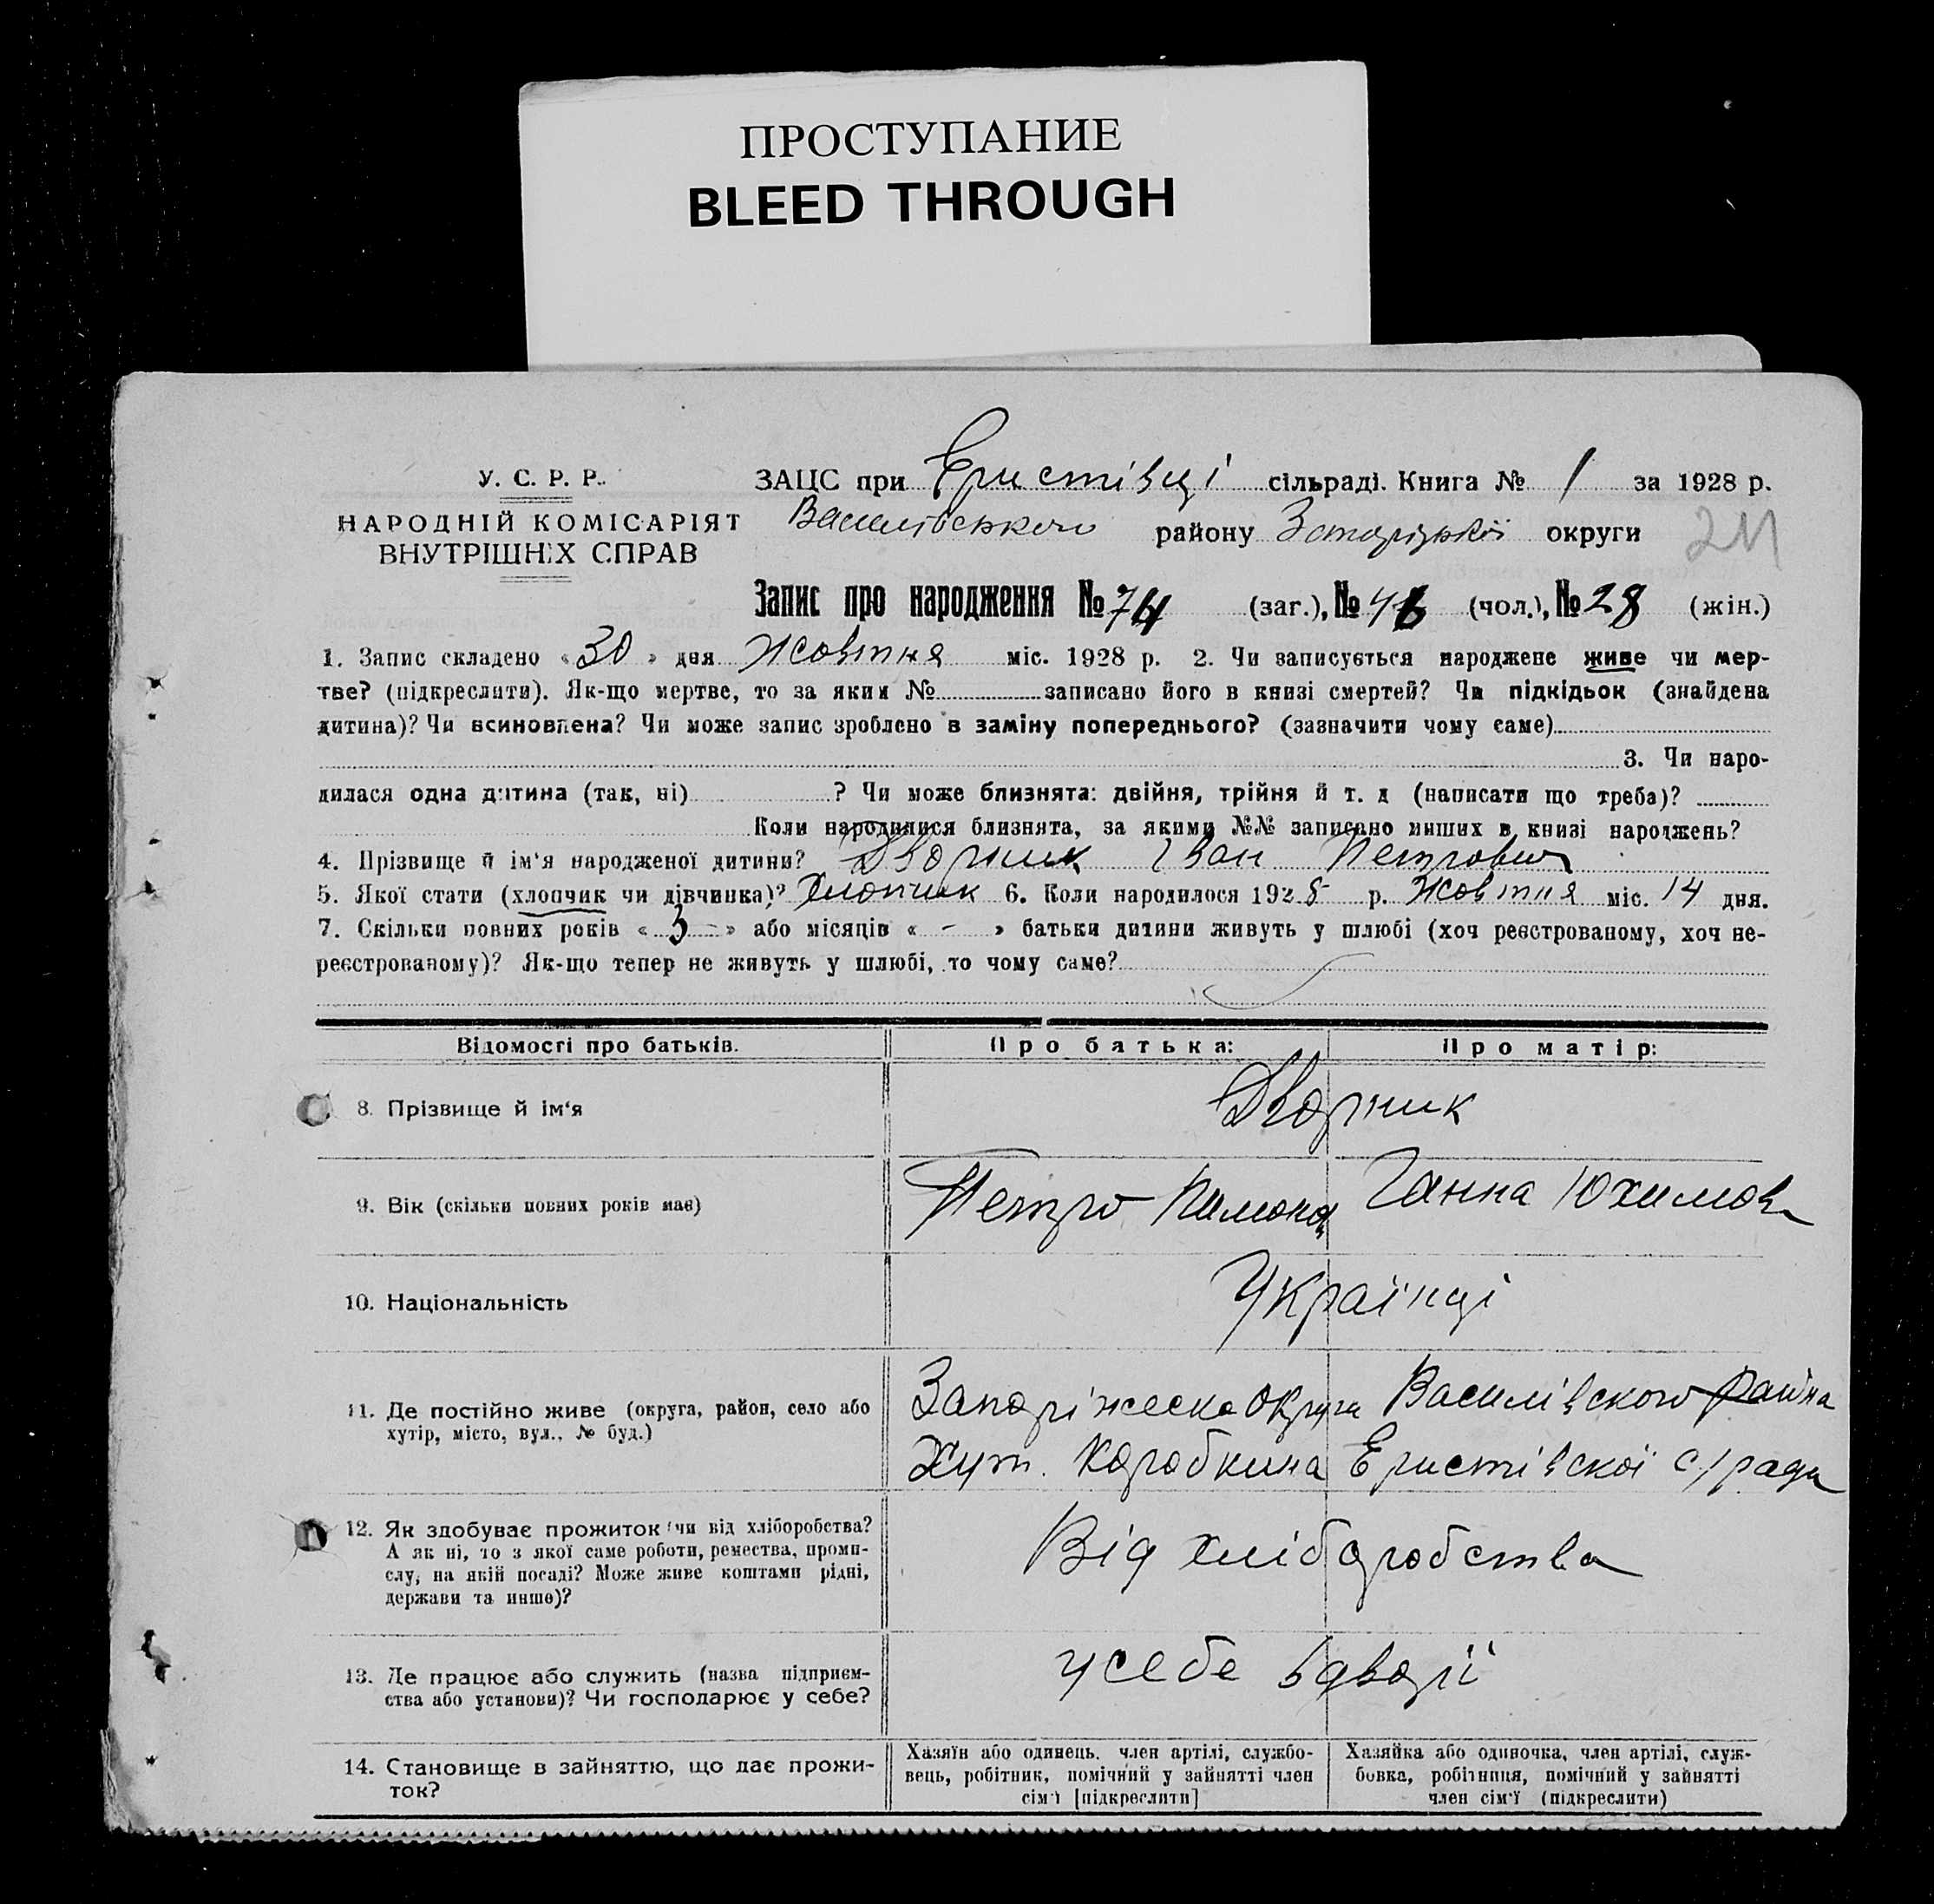 ПРОСТУПАНИЕ
BLEED THROUGH
У. С. Р. Р.
НАРОДНІЙ КОМІСАРІЯТ
ВНУТРІШНІХ СПРАВ
ЗАЦС при Еристівці сільраді. Книга № 1 за 1928 р.
Василівського району Запорізької округи
Запис про народження № 74 (заг.), № 46 (чол.), № 28 (жін.)
1. Запис складено «30» дня Жовтня міс. 1928 р. 2. Чи записується народжене живе чи мер-
тве? (підкреслити). Як-що мертве, то за яким № записано його в книзі смертей? Чи підкідьок (знайдена
дитина)? Чи всиновлена? Чи може запис зроблено в заміну попереднього? (зазначити чому саме)
3. Чи наро-
дилася одна дитина (так, ні) ? Чи може близнята: двійня, трійня й т. д (написати що треба)?
Коли народилися близнята, за якими №№ записано инших в книзі народжень?
4. Прізвище й ім'я народженої дитини? Дворник Іван Петрович
5. Якої стати (хлопчик чи дівчинка)? Хлопчик 6. Коли народилося 1928 р. Жовтня міс. 14 дня.
7. Скільки повних років « 3 - » або місяців « - » батьки дитини живуть у шлюбі (хоч реєстрованому, хоч не-
реєстрованому)? Як-що тепер не живуть у шлюбі, то чому саме?
Відомості про батьків. Про батька: Про матір:
8. Прізвище й ім'я Дворник
9. Вік (скільки повних років має) Петро Ганна Юхимов
10. Національність Українці
11. Де постійно живе (округа, район, село або
хутір, місто, вул., № буд.)
Запоріжеска Округа Василівского района
Хут. Коробкина Еристівскої с/ради
12. Як здобуває прожиток (чи від хліборобства?
А як ні, то з якої саме роботи, ремества, проми-
слу, на якій посаді? Може живе коштами рідні,
держави та инше)?
Від хліборобства
13. Де працює або служить (назва підприєм-
ства або установи)? Чи господарює у себе?
у себе в дворі
14. Становище в зайняттю, що дає прожи-
ток?
Хазяїн або одинець, член артілі, службо-
вець, робітник, помічний у зайнятті член
сім'ї [підкреслити]
Хазяйка або одиночка, член артілі, служ-
бовка, робітниця, помічний у зайнятті
член сім'ї (підкреслити)